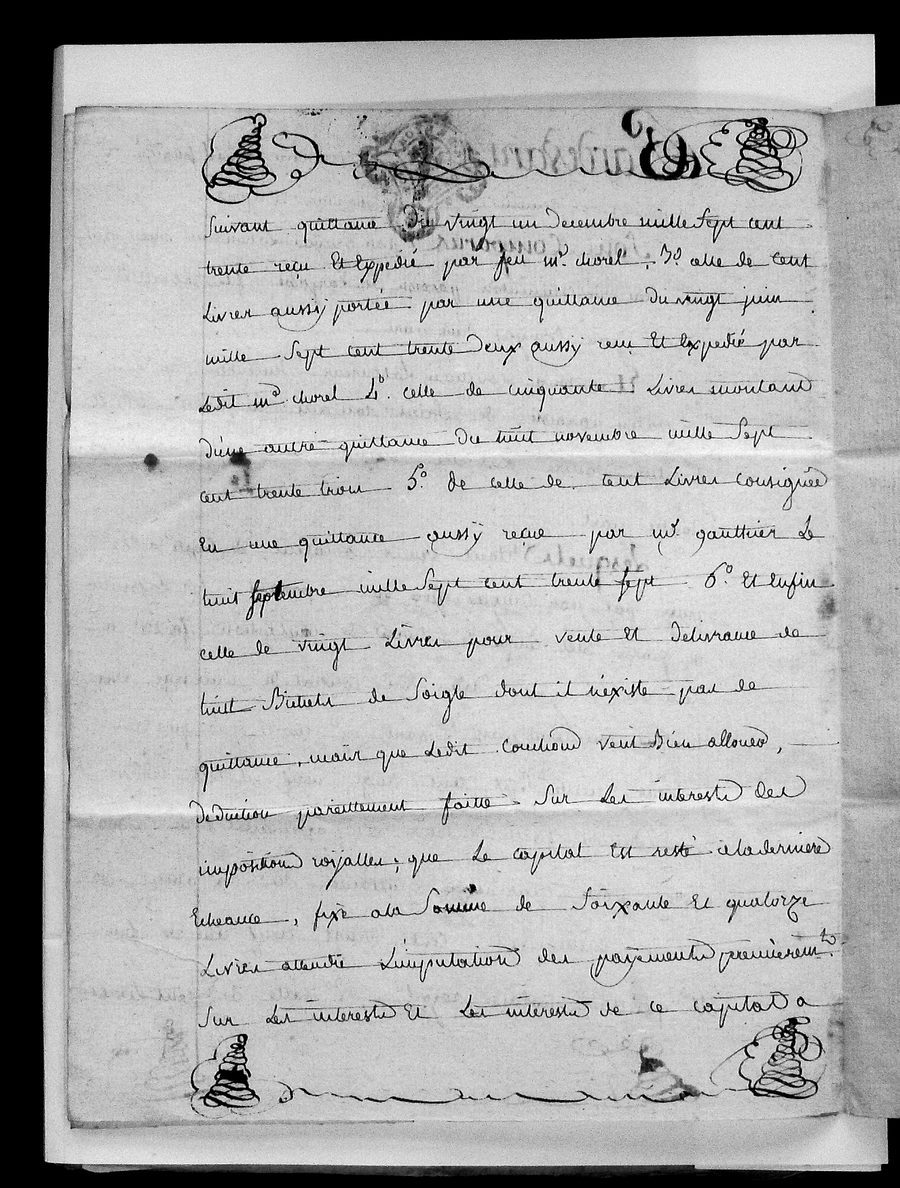 Suivant quittance du vingt un decembre mille Sept cent
trente reçu Et Expedié par feu mᵉ. chorel, 3º. celle de cent
Livres aussy portée par une quittance du vingt juin
mille Sept cent trente deux aussy reçu Et Expedié par
Ledit mᵉ chorel 4º. celle de cinquante Livres montant
d'une autre quittance du huit novembre mille Sept
cent trente trois 5º. de celle de cent Livres consignée
En une quittance aussÿ recue par mᵉ. gautthier Le
huit Septembre mille Sept cent trente Sept 6º. Et enfin
celle de vingt Livres pour vente Et delivrance de
huit Bichets de Soigle dont il n'existe pas de
quittance, mais que Ledit veut Bien allouer,
deduction pareillement faitte Sur Les interests des
impositions royalles, que Le capital Est resté a la derniere
Echeance, fixé a la Somme de Soixante Et quatorze
Livres attendu L'imputation des payements premieremt.
Sur Les interests Et Les interests de ce capital a